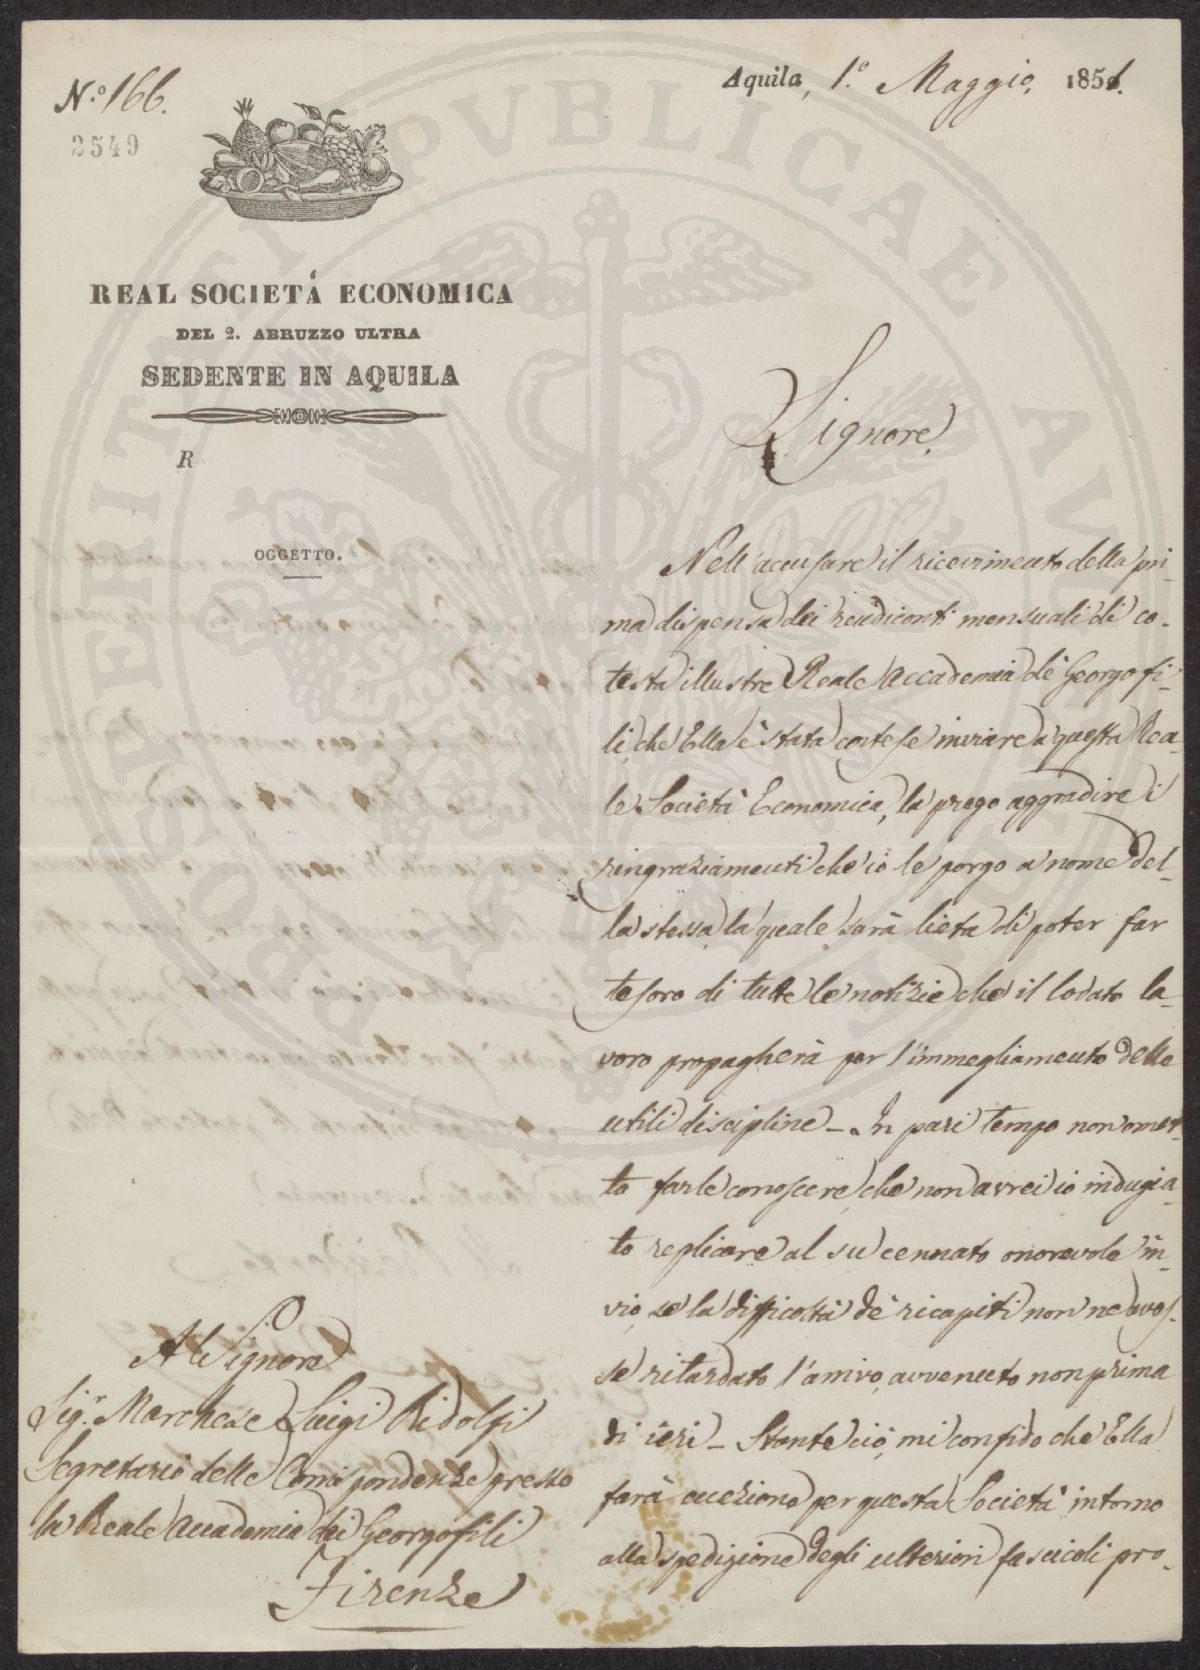 N.º 166.
2549
Aquila, 1.º Maggio, 1851.
REAL SOCIETÁ ECONOMICA
DEL 2. ABRUZZO ULTRA
SEDENTE IN AQUILA
R
OGGETTO.
Signore,
Nell'accusare il ricevimento della pri-
ma dispensa dei rendiconti mensuali di co-
testa illustre Reale Accademia de' Georgofi-
li, che Ella è stata cortese inviare a questa Rea-
le Società Economica, la prego aggradire i
ringraziamenti che io le porgo a nome del-
la stessa, la quale sarà lieta di poter far
tesoro di tutte le notizie che il lodato la-
voro propagherà per l'immegliamento delle
utili discipline - In pari tempo non omet-
to farle conoscere, che non avrei io indugia-
to replicare al su cennato onorevole in-
vio, se la difficoltà de' ricapiti non ne aves-
se ritardato l'arrivo, avvenuto non prima
di ieri - Stante ciò, mi confido che Ella
farà eccezione per questa Società intorno
alla spedizione degli ulteriori fascicoli pro-
Al Signore
Sig.r Marchese Luigi Ridolfi
Segretario delle Corrispondenze presso
la Reale Accademia dei Georgofili
Firenze
PROSPERITATI PUBLICAE AU